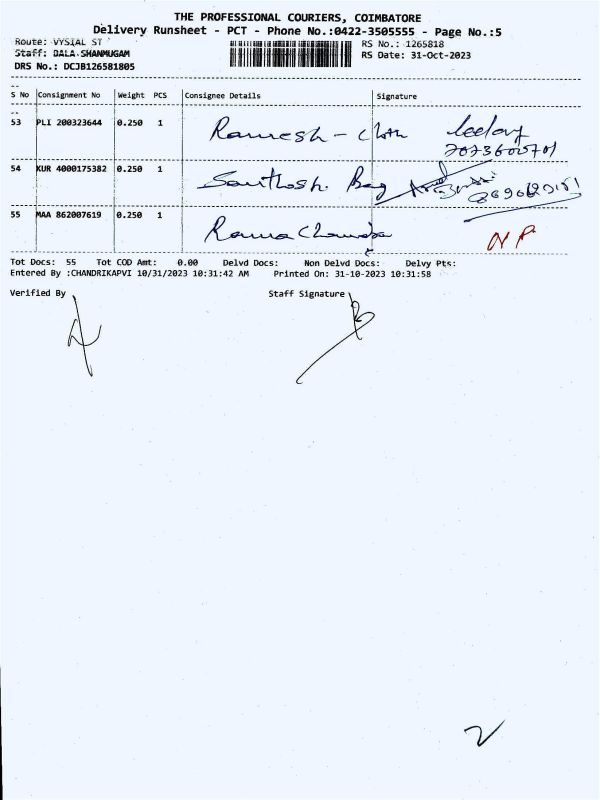 THE PROFESSIONAL COURIERS, COIMBATORE
Delivery Runsheet - PCT - Phone No.:0422-3505555 - Page No.:5
Route: VYSIAL ST
RS No.: 1265818
Staff: DALA SHANMUGAM
RS Date: 31-Oct-2023
DRS No.: DCJB126581805
S No Consignment No Weight PCS Consignee Details Signature
53 PLI 200323644 0.250 1 Ramesh - cloth
54 KUR 4000175382 0.250 1 Santhosh. Bag
55 MAA 862007619 0.250 1 Rama Chandra NP
Tot Docs: 55 Tot COD Amt: 0.00 Delvd Docs: Non Delvd Docs: Delvy Pts:
Entered By :CHANDRIKAPVI 10/31/2023 10:31:42 AM Printed On: 31-10-2023 10:31:58
Verified By Staff Signature